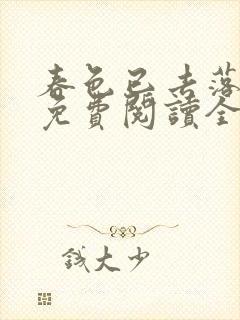 春色已去落
免費閱讀全
錢大少